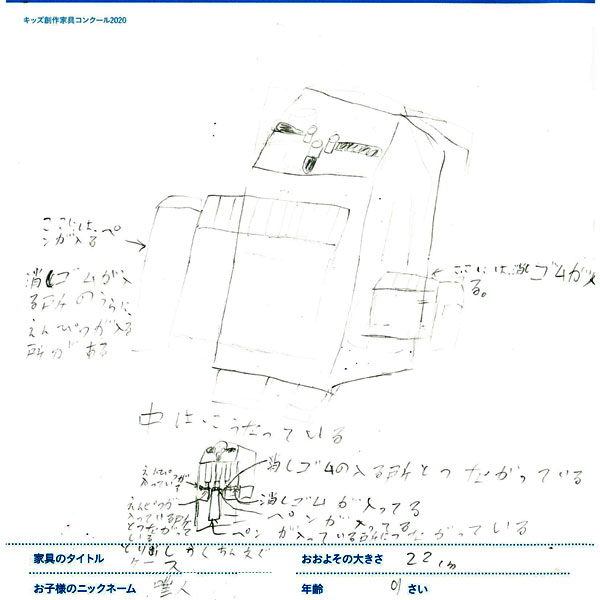 キッズ創作家具コンクール2020
ここには、ペ
ンが入る
消しゴムが入
る所のうらに
えんぴつが入る
所がある
ここには消しゴムが入
る。
中は、こうなっている
えんぴつが
入っている
消しゴムの入る所とつながっている
えんぴつが
入っている所
とつながって
いる
消しゴムが入ってる
ペンが入ってる
ペンが入っている所につながっている
家具のタイトル
ケース
おおよその大きさ 22cm
お子様のニックネーム
年齢 9さい